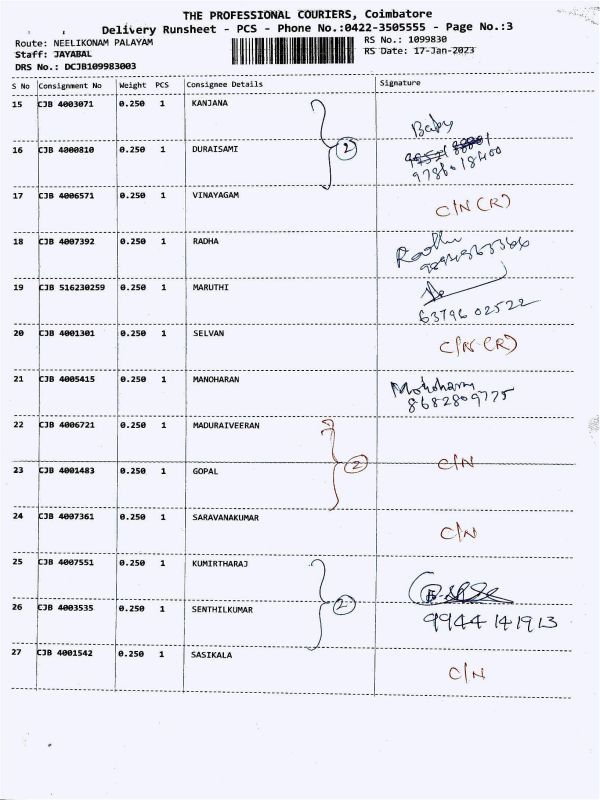 THE PROFESSIONAL COURIERS, Coimbatore
Delivery Runsheet - PCS - Phone No.:0422-3505555 - Page No.:3
Route: NEELIKONAM PALAYAM
RS No.: 1099830
Staff: JAYABAL
RS Date: 17-Jan-2023
DRS No.: DCJB109983003
S No Consignment No Weight PCS Consignee Details Signature
15 CJB 4003071 0.250 1 KANJANA
Baby
16 CJB 4000810 0.250 1 DURAISAMI
2
97860 18400
17 CJB 4006571 0.250 1 VINAYAGAM
C/N (R)
18 CJB 4007392 0.250 1 RADHA
Radha
19 CJB 516230259 0.250 1 MARUTHI
63796 02522
20 CJB 4001301 0.250 1 SELVAN
C/N (R)
21 CJB 4005415 0.250 1 MANOHARAN
8682809775
22 CJB 4006721 0.250 1 MADURAIVEERAN
2 C/N
23 CJB 4001483 0.250 1 GOPAL
24 CJB 4007361 0.250 1 SARAVANAKUMAR
C/N
25 CJB 4007551 0.250 1 KUMIRTHARAJ
26 CJB 4003535 0.250 1 SENTHILKUMAR
2 9944 141913
27 CJB 4001542 0.250 1 SASIKALA
C/N